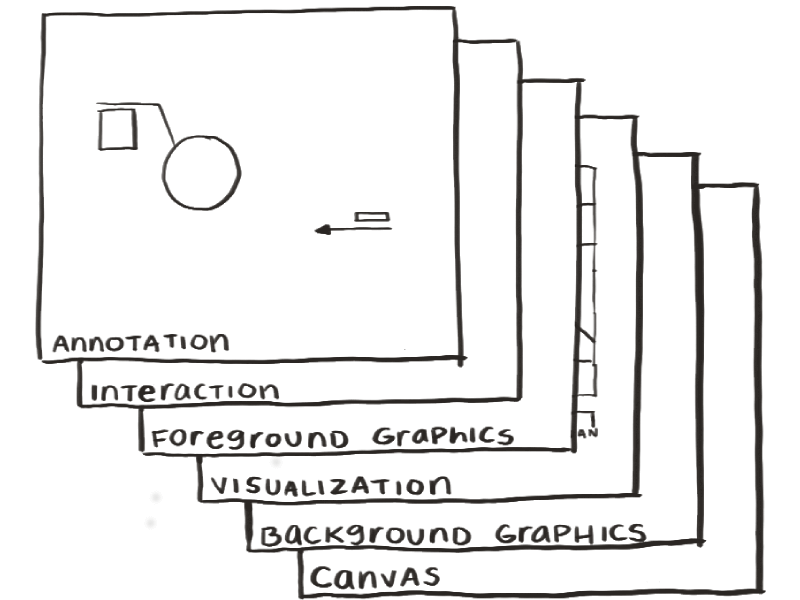 Annotation
Interaction
Foreground Graphics
AN
Visualization
Background Graphics
Canvas